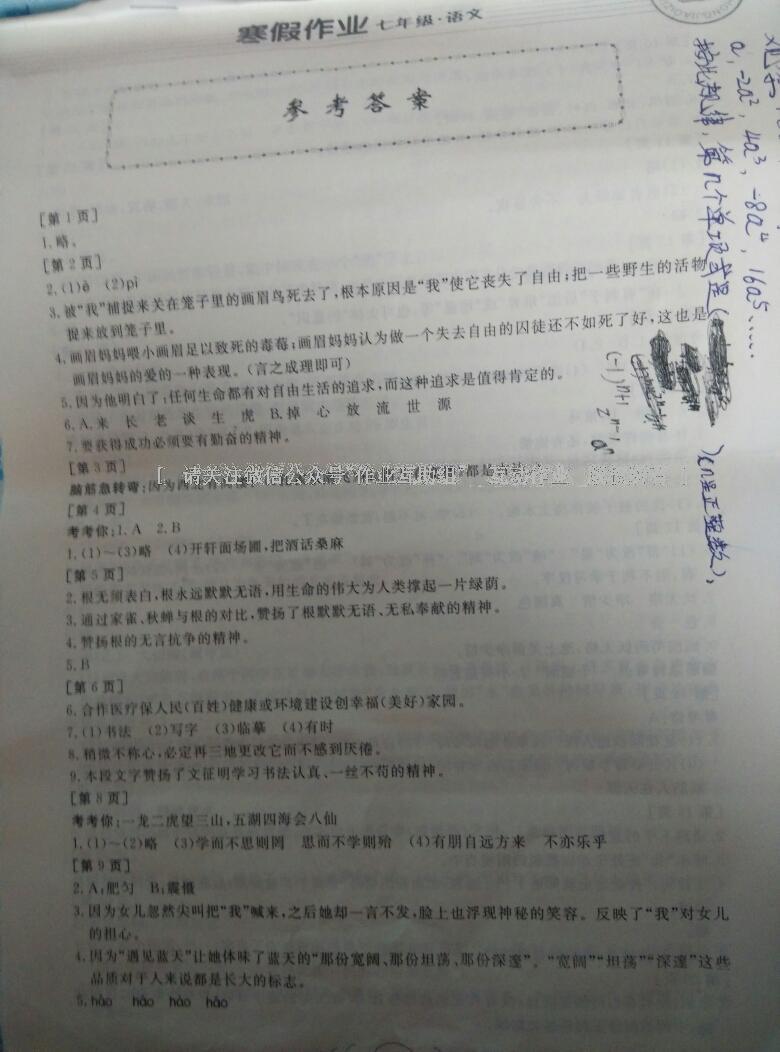 寒假作业 七年级·语文
参考答案
[第1页]
1.略。
[第2页]
2.(1)è (2)pì
3.被“我”捕捉来关在笼子里的画眉鸟死去了,根本原因是“我”使它丧失了自由;把一些野生的活物
捉来放到笼子里。
4.画眉妈妈喂小画眉足以致死的毒莓;画眉妈妈认为做一个失去自由的囚徒还不如死了好,这也是
画眉妈妈的爱的一种表现。(言之成理即可)
5.因为他明白了:任何生命都有对自由生活的追求,而这种追求是值得肯定的。
6.A.来 长 老 谈 生 虎 B.掉 心 放 流 世 源
7.要获得成功必须要有勤奋的精神。
[第3页]
请关注微信公众号“作业互助组”
脑筋急转弯:因为西北有高楼
[第4页]
考考你:1.A 2.B
1.(1)~(3)略 (4)开轩面场圃,把酒话桑麻
[第5页]
2.根无须表白,根永远默默无语,用生命的伟大为人类撑起一片绿荫。
3.通过家雀、秋蝉与根的对比,赞扬了根默默无语、无私奉献的精神。
4.赞扬根的无言抗争的精神。
5.B
[第6页]
6.合作医疗保人民(百姓)健康或环境建设创幸福(美好)家园。
7.(1)书法 (2)写字 (3)临摹 (4)有时
8.稍微不称心,必定再三地更改它而不感到厌倦。
9.本段文字赞扬了文征明学习书法认真、一丝不苟的精神。
[第8页]
考考你:一龙二虎望三山,五湖四海会八仙
1.(1)~(2)略 (3)学而不思则罔 思而不学则殆 (4)有朋自远方来 不亦乐乎
[第9页]
2.A:肥匀 B:震慑
3.因为女儿忽然尖叫把“我”喊来,之后她却一言不发,脸上也浮现神秘的笑容。反映了“我”对女儿
的粗心。
4.因为“遇见蓝天”让她体味了蓝天的“那份宽阔、那份坦荡、那份深邃”。“宽阔”“坦荡”“深邃”这些
品质对于人来说都是长大的标志。
5.hǎo hǎo hào hǎo
a,-2a²,4a³,-8a⁴,16a5……
按此规律,第n个单项式是( )(n是正整数),
(-1)ⁿ⁺¹ 2ⁿ⁻¹aⁿ